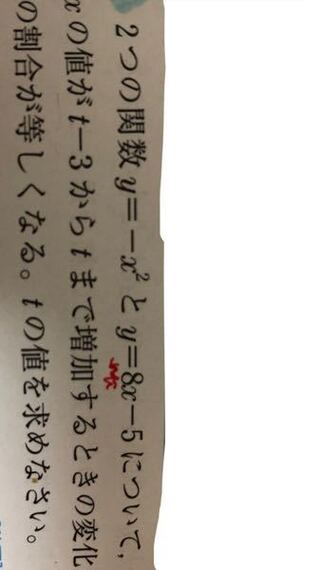 2つの関数y=−x²とy=8x−5について,
xの値がt−3からtまで増加するときの変化
の割合が等しくなる。tの値を求めなさい。